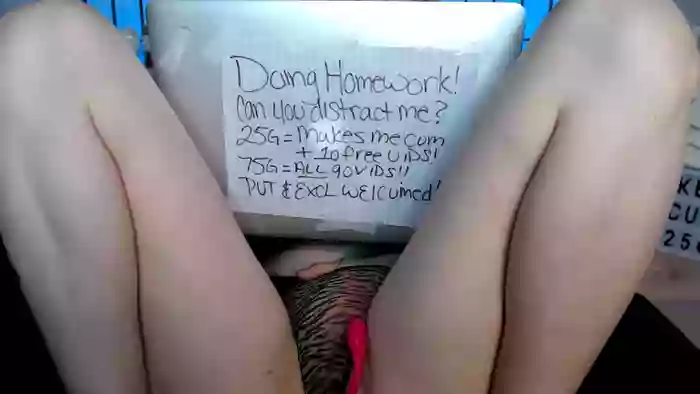 Doing Homework!
Can you distract me?
25G = Makes me cum
+ 10 free vids!
75G = ALL 90 VIDS!!
PVT & EXCL Welcumed!
KE
CU
25